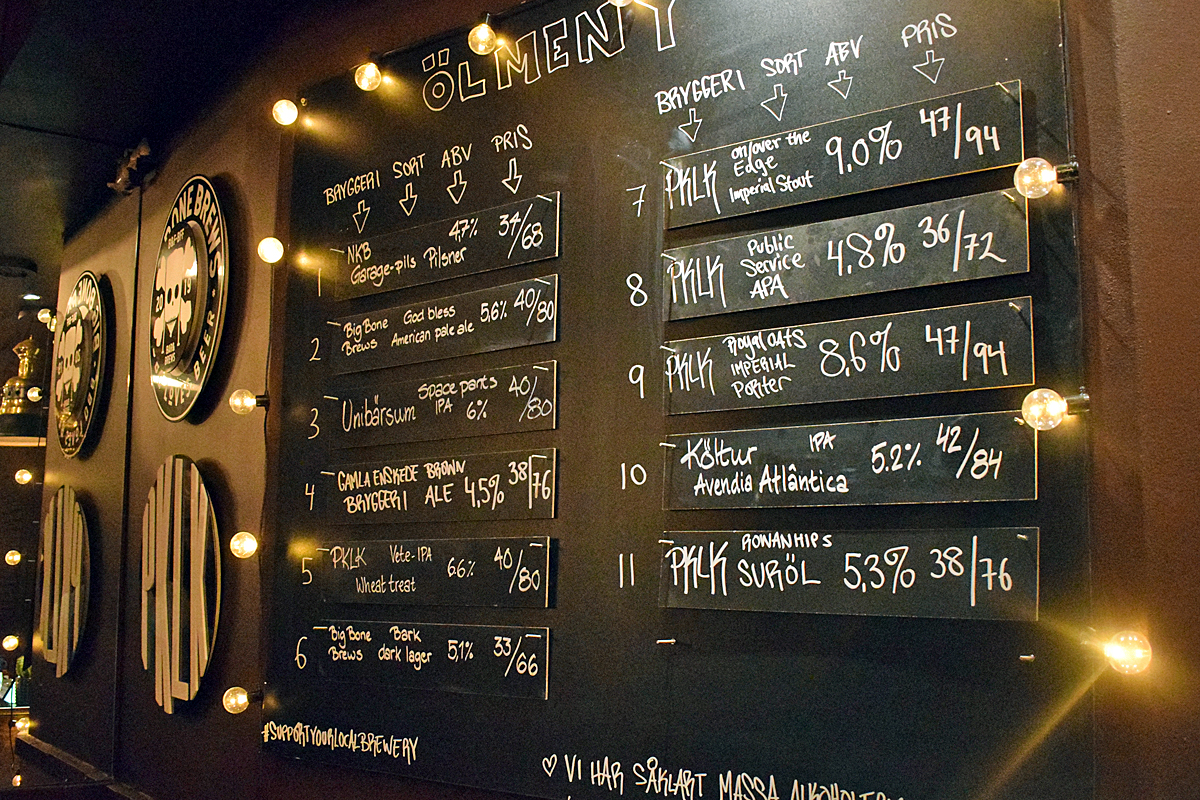 ÖLMENY
BRYGGERI SORT ABV PRIS
1 NKB 4,7% 34/68
Garage-pils Pilsner
2 Big Bone God bless 5,6% 40/80
Brews American pale ale
3 Unibärsum Space pants 40/80
IPA 6%
4 GAMLA ENSKEDE BROWN 38/76
BRYGGERI ALE 4,5%
5 PKLK Vete-IPA 6.6% 40/80
Wheat treat
6 Big Bone Bark 5,1% 33/66
Brews dark lager
#SUPPORTYOURLOCALBREWERY
BRYGGERI SORT ABV PRIS
7 PKLK on/over the 9,0% 47/94
Edge
Imperial Stout
8 PKLK Public 4,8% 36/72
Service
APA
9 PKLK Royal OATS 8,6% 47/94
IMPERIAL
Porter
10 Költur IPA 5.2% 42/84
Avendia Atlântica
11 PKLK ROWANHIPS 5,3% 38/76
SURÖL
♡ VI HAR SÅKLART MASSA
BONE BREWS
2019
LOVES BEER
PKLK